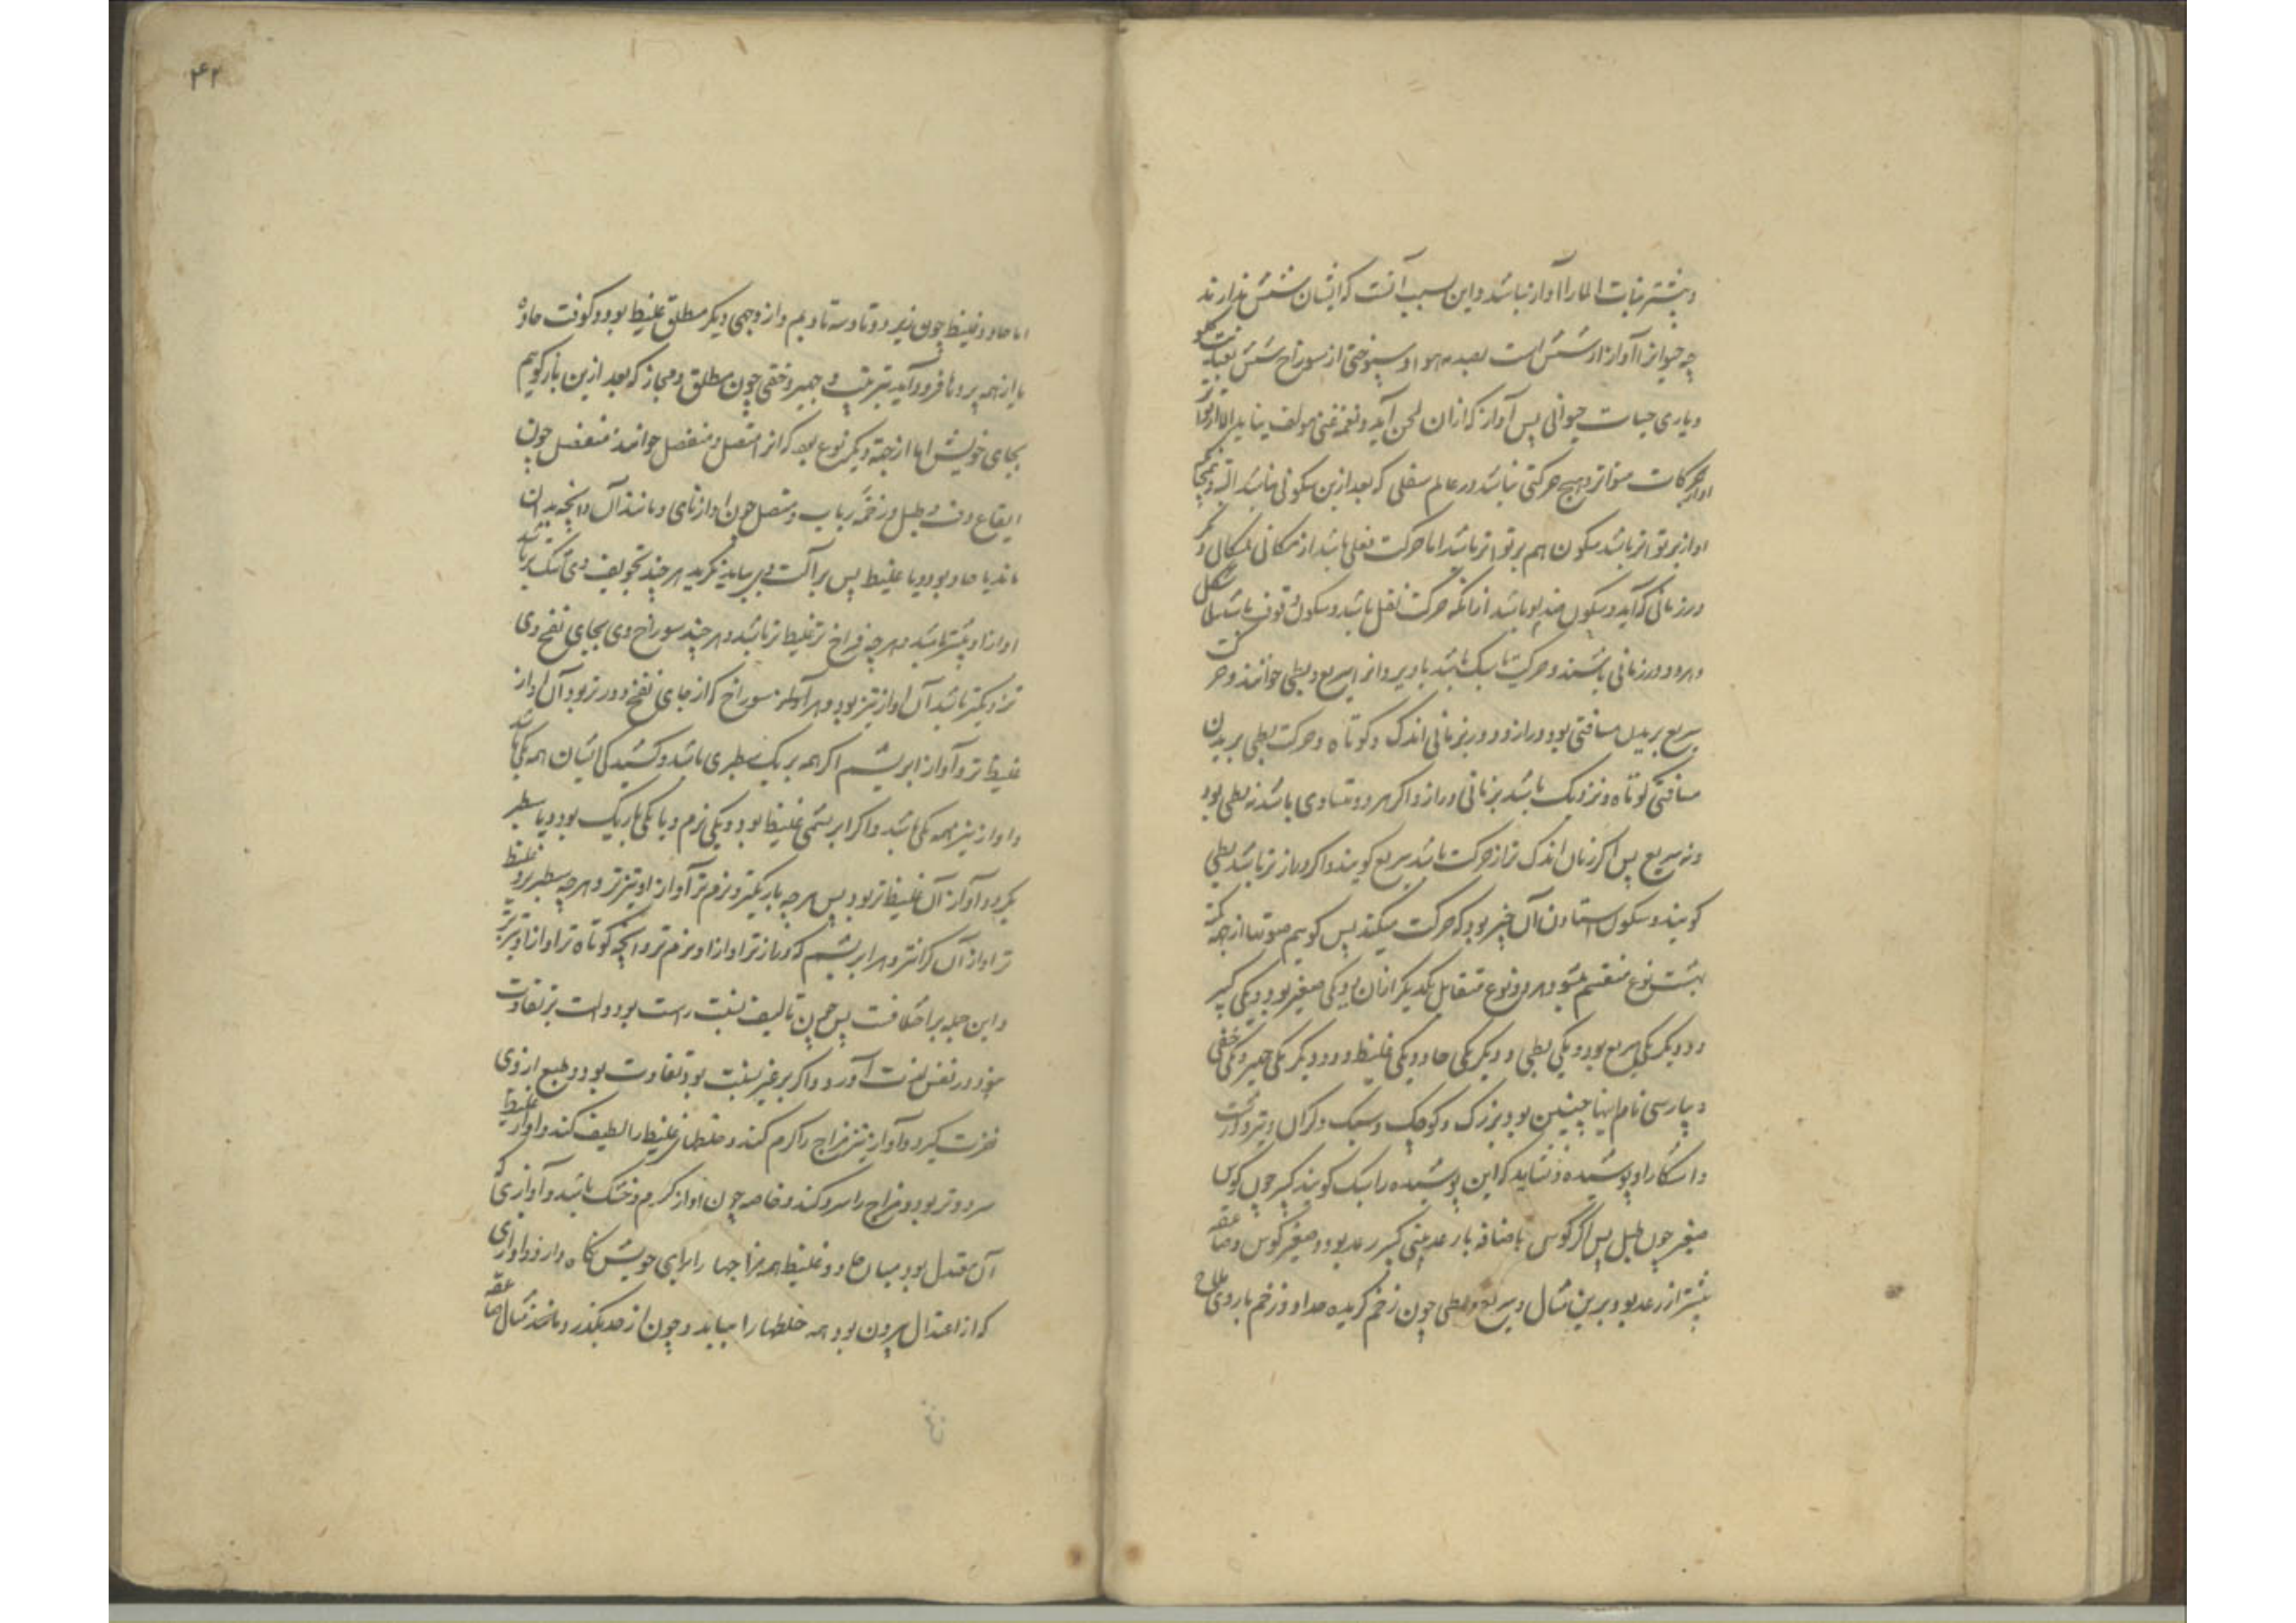 و بیشتر نبات الما را آواز نباشد و این بسبب آنست که ایشان شش ندارند
چه حیوانرا آواز از شش است بصدمه هوا و بیرون از سوراخ شش
و یاری حیات حیوانی پس آواز که ازان لحن آید و نغمه غنی مولف بیاید الا از
حرکات متواتر و هیچ حرکتی نباشد در عالم سفلی که بعد ازین سکونی نباشد البته
اواز بر تواتر باشد سکون هم بر تواتر باشد اما حرکت نقلی باشد از مکانی بمکانی
در زمانی که آید و سکون ضد او باشد از انکه حرکت نقل باشد و سکون وقوف باشد
و هر دو در زمانی باشند و حرکت یا سبک باشد یا دیر و انرا سریع و بطی خوانند و حرکت
سریع بریدن مسافتی بود دراز و دور بزمانی اندک و کوتاه و حرکت بطی بریدن
مسافتی کوتاه و نزدیک باشد بزمانی دراز و اکر هر دو متساوی باشد نه بطی بود
و نه سریع پس اکر زمان اندک تر از حرکت باشد سریع کویند و اکر دراز تر باشد بطی
کویند و سکون استادن آن چیز بود که حرکت میکند پس کویم صوتها از جهة
بهشت نوع منقسم شود و هر دو نوع متقابل یکدیکر ازان بود یکی صغیر بود و یکی کبیر
و دیکر یکی سریع بود و یکی بطی و دیکر یکی حاد و یکی غلیظ و دیکر یکی جهیر و یکی خفی
و پارسی نام اینها چنین بود بزرک و کوچک و سبک و کران و تیز و درشت
و اشکارا و پوشیده و نشاید که این پوشیده را سبک کویند کبیر چون کوس
صغیر چون طبل پس اکر کوس باضافه با رعد بینی کبیر رعد بود و صغیر کوس و صاعقه
بیشتر از رعد بود برین مثال و سریع و بطی چون زخم کرینه حداد و زخم باروی
۴۲
اما حاد و غلیظ چون زیر و دوتا و سه تا و بم و از وجهی دیکر مطلق غلیظ بود و کوفت حاد
باز از همه پرده فرود آید بترتیب و جهیر و خفی چون مطلق و مجاز که بعد ازین باز کویم
بجای خویش اما از جهة دیکر نوع بود که انرا متصل و منفصل خوانند منفصل چون
ایقاع دف و طبل و زخمه رباب و متصل چون اواز نای و مانند آن و انچه بدان
ماند یا حاد بود و یا غلیظ پس بر آلت دمی بباید نکرید هر چند تجویف وی تنک تر باشد
اواز او تیزتر باشد و هر چه فراخ تر غلیظ تر باشد و هر چند سوراخ وی بجای نفخ وی
نزدیکتر باشد آن اواز تیز بود و هر آواز سوراخ که از جای نفخ دور تر بود آن اواز
غلیظ تر و آواز ابریشم اکر همه بر یک سطبری باشد و کشیدکی ایشان همه یکی باشد
و اواز نیز همه یکی باشد و اکر ابریشمی غلیظ بود و یکی نرم و یا یکی باریک بود و یا سطبر
بکردد آواز آن غلیظ تر بود پس هر چه باریکتر و نرم تر آواز او تیزتر و هر چه سطبرتر و غلیظ
تر اواز آن کرانتر و هر ابریشم که دراز تر اواز او نرم تر و انچه کوتاه تر اواز او تیزتر
و این جمله بر اضافت پس چون تالیف بنسبت راست بود ولت بر تفاوت
بود در نفس لذت آورد و اکر بر غیر نسبت بود تفاوت بود و طبع ازوی
نفرت کیرد و آواز تیز مزاج را کرم کند و خلطهای غلیظ را لطیف کند و اواز غلیظ
سرد و تر بود و مزاج را سرد کند و خاصه چون اواز کرم و خشک باشد و آوازی که
آن معتدل بود میان حاد و غلیظ همه مزاجها را برای خویش نکاه دارد و اوازی
که از اعتدال بیرون بود همه خلطها را بباید و چون از حد بکذرد مانند مثال صاعقه